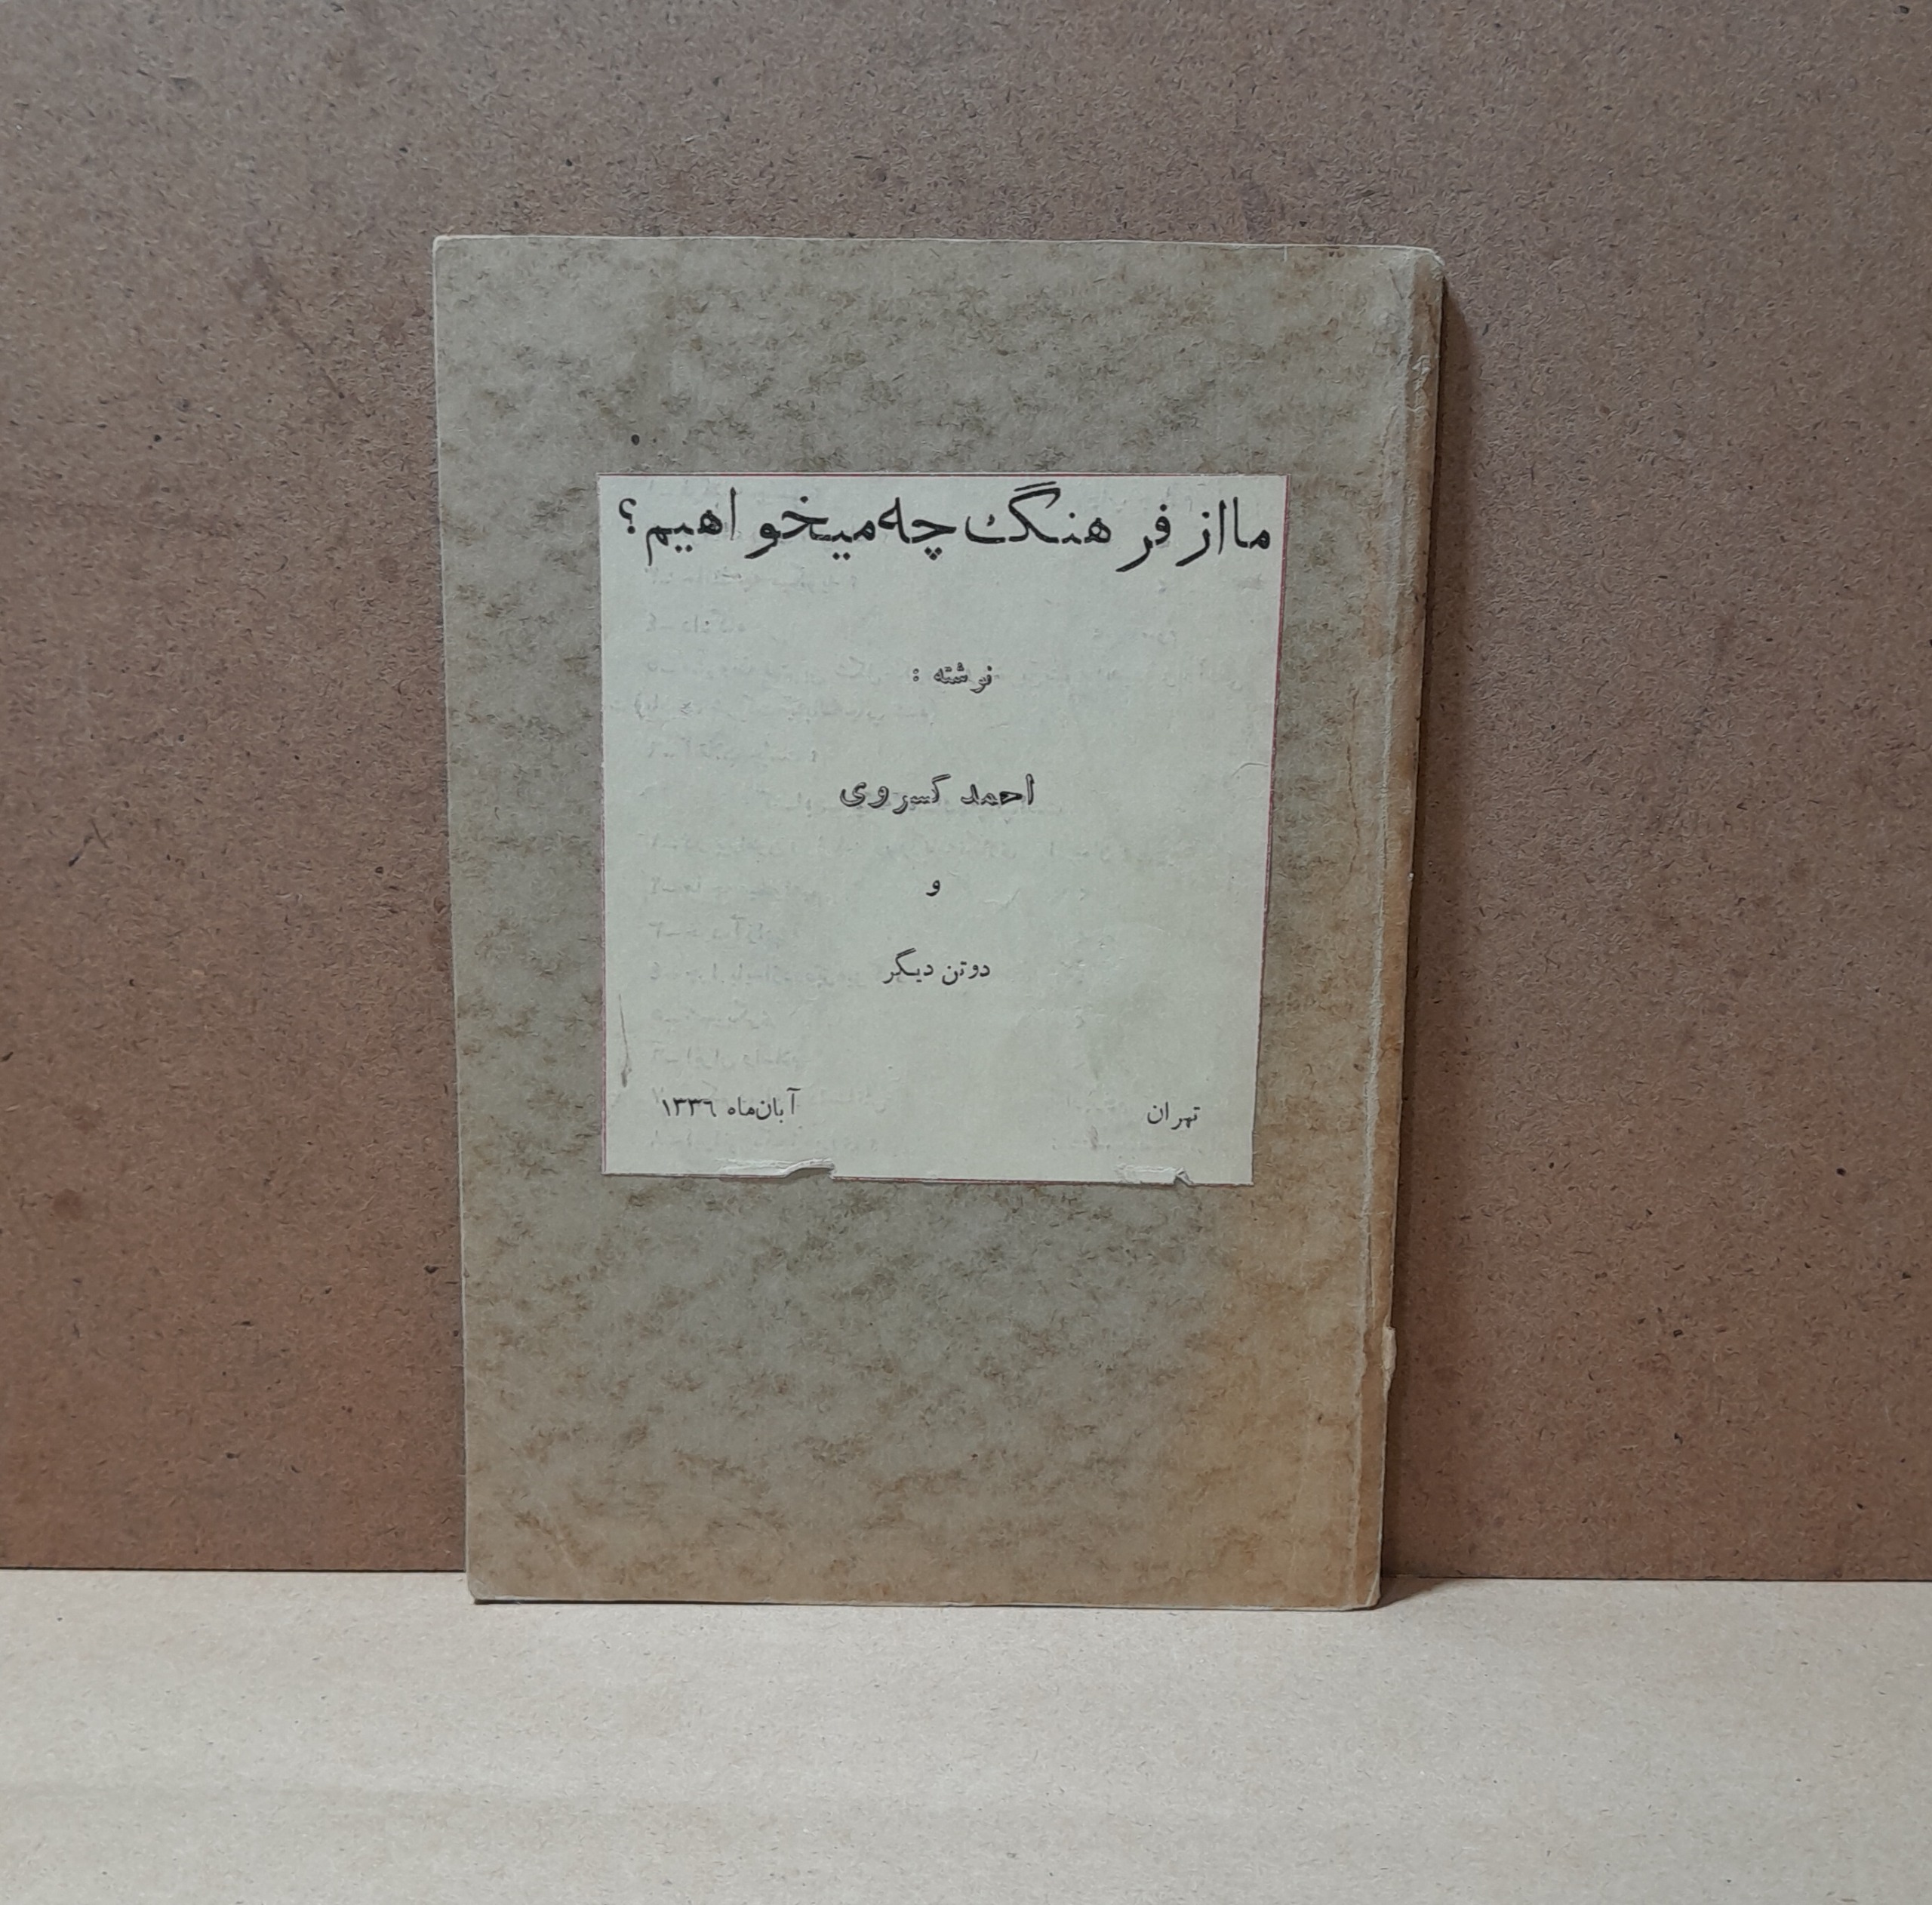 ما از فرهنگ چه میخواهیم؟
نوشته :
احمد کسروی
و
دوتن دیگر
تهران آبان‌ماه ۱۳۳۶